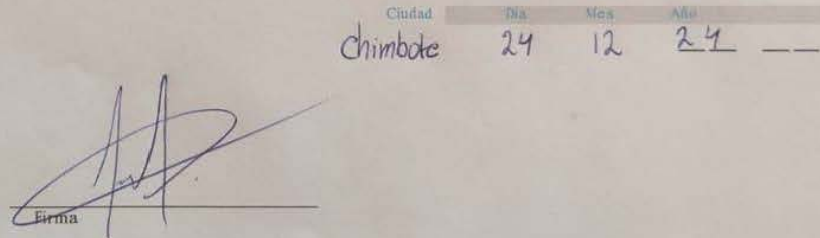 Ciudad Día Mes Año
Chimbote 24 12 24
Firma